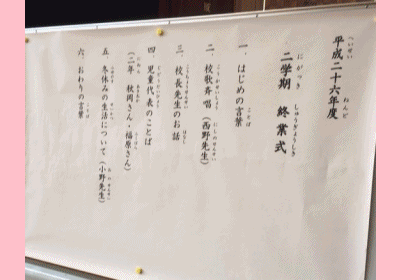 平成二十六年度
二学期 終業式
一、はじめの言葉
二、校歌斉唱(西野先生)
三、校長先生のお話
四、児童代表のことば
(二年 秋岡さん・福原さん)
五、冬休みの生活について(小野先生)
六、おわりの言葉